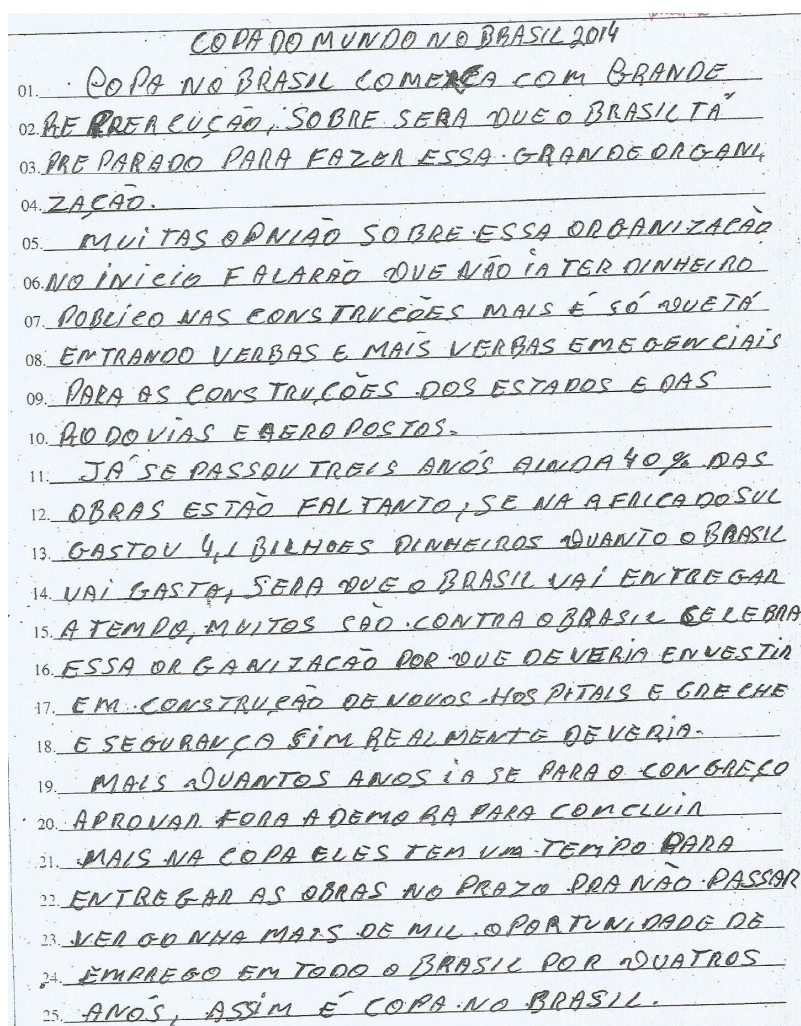 COPA DO MUNDO NO BRASIL 2014
01. COPA NO BRASIL COMEÇA COM GRANDE
02. REPREACUÇÃO, SOBRE SERA QUE O BRASIL TÁ
03. PREPARADO PARA FAZER ESSA GRANDE ORGANI
04. ZAÇÃO.
05. MUITAS OPNIÃO SOBRE ESSA ORGANIZAÇÃO
06. NO INICIO FALARÃO QUE NÃO IA TER DINHEIRO
07. POBLICO NAS CONSTRUÇÕES MAIS É SÓ QUE TÁ
08. ENTRANDO VERBAS E MAIS VERBAS EMEGENCIAIS
09. PARA AS CONSTRUÇÕES DOS ESTADOS E DAS
10. RODOVIAS E AEROPOSTOS.
11. JÁ SE PASSOU TREIS ANOS AINDA 40% DAS
12. OBRAS ESTÃO FALTANTO, SE NA AFRICA DO SUL
13. GASTOU 4,1 BILHOES DINHEIROS QUANTO O BRASIL
14. VAI GASTA, SERA QUE O BRASIL VAI ENTREGAR
15. A TEMPO, MUITOS SÃO CONTRA O BRASIL CELEBRA
16. ESSA ORGANIZACÃO POR QUE DEVERIA ENVESTIR
17. EM CONSTRUÇÃO DE NOVOS HOSPITAIS E CRECHE
18. E SEGURANÇA SIM REALMENTE DEVERIA.
19. MAIS QUANTOS ANOS IA SE PARA O CONGREÇO
20. APROVAR FORA A DEMORA PARA COMCLUIR
21. MAIS NA COPA ELES TEM UM TEMPO PARA
22. ENTREGAR AS OBRAS NO PRAZO PRA NÃO PASSAR
23. VERGONHA MAIS DE MIL OPORTUNIDADE DE
24. EMPREGO EM TODO O BRASIL POR QUATROS
25. ANOS, ASSIM É COPA NO BRASIL.